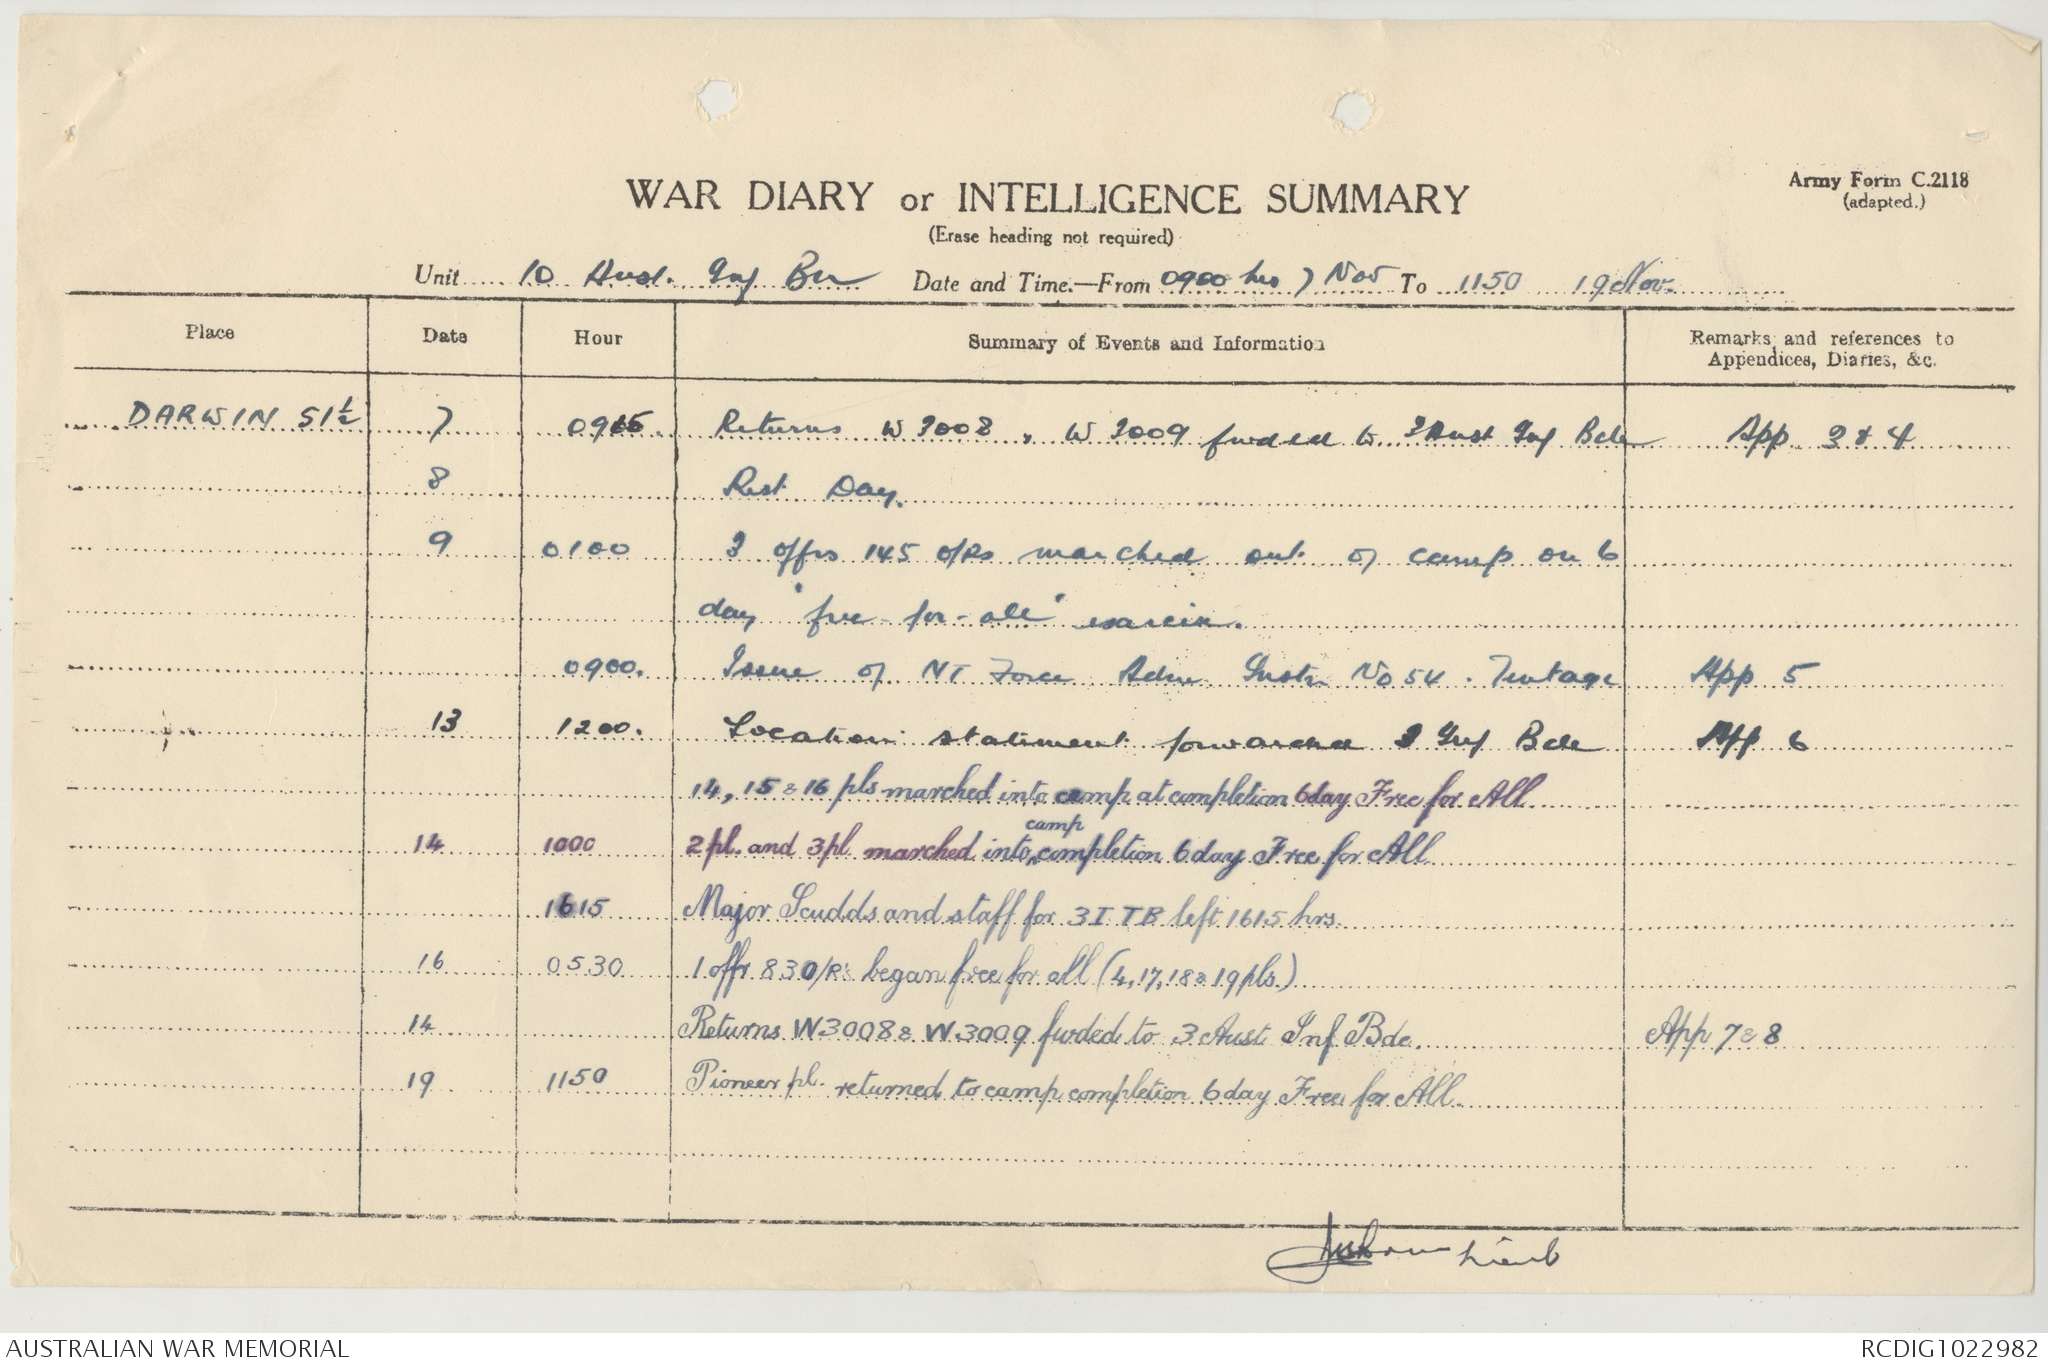 Army Form C.2118
(adapted.)
WAR DIARY or INTELLIGENCE SUMMARY
(Erase heading not required)
Unit 10 Aust. Inf Bn Date and Time.—From 0900 hrs 7 Nov To 1150 19 Nov.
Place Date Hour Summary of Events and Information Remarks and references to Appendices, Diaries, &c.
DARWIN 51½ 7 0915. Returns W 3008, W 3009 fwded to 3 Aust Inf Bde App 3 & 4
8 Rest Day.
9 0100 3 offrs 145 o/Rs marched out of camp on 6
day "free-for-all" exercise.
0900. Issue of NT Force Adm Instr No 54. Tentage App 5
13 1200. Location statement forwarded 3 Inf Bde App 6
14, 15 & 16 pls marched into camp at completion 6 day Free for All
14 1000 2 pl. and 3 pl. marched into camp completion 6 day Free for All
1615 Major Scudds and staff for 3 I T B left 1615 hrs.
16 0530 1 offr 83 O/R's began free for all (4, 17, 18 & 19 pls.)
14 Returns W3008 & W3009 fwded to 3 Aust Inf Bde. App 7 & 8
19 1150 Pioneer pl. returned to camp completion 6 day Free for All.
Lieut
AUSTRALIAN WAR MEMORIAL RCDIG1022982